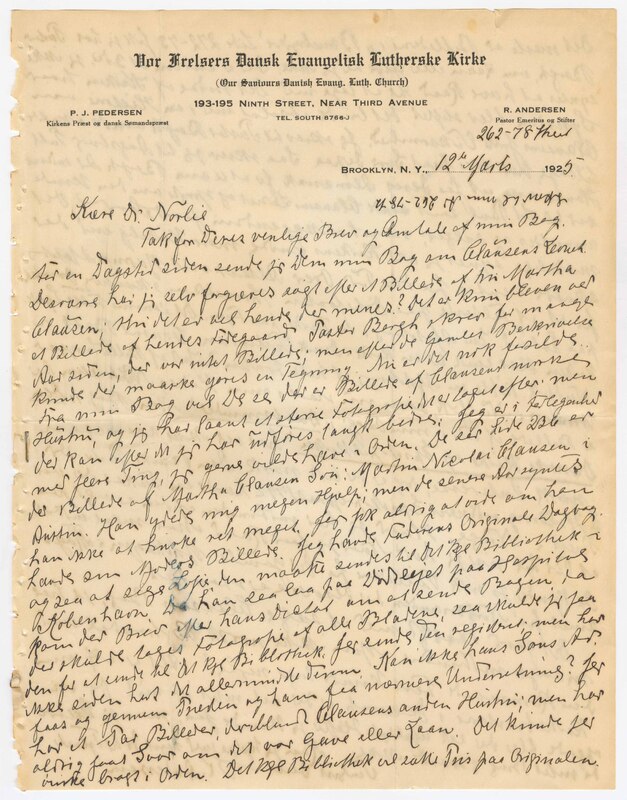 Vor Frelsers Dansk Evangelisk Lutherske Kirke
(Our Saviours Danish Evang. Luth. Church)
193-195 Ninth Street, Near Third Avenue
TEL. SOUTH 8766-J
P. J. PEDERSEN
Kirkens Præst og dansk Sømandspræst
R. ANDERSEN
Pastor Emeritus og Stifter
262-78 Street
BROOKLYN, N. Y., 12te Marts 1925
Kære Dr. Norlie
Tak for Deres venlige Brev og Omtale af min Bog.
For en Dagstid siden sende jeg Dem min Bog om Clausens
Desværre har jeg selv forgæves søgt efter et Billede af Fru Martha
Clausen, thi det er vel hende der menes? Det er kun bleven
et Billede af hendes Fødegaard. Pastor Bergh skrev for mange
Aar siden, der var intet Billede, men efter de Gamles Beskrivelse
kunde der maaske gøres en Tegning. Nu er det nok forsilde.
Fra min Bog vil De se der er Billede af Clausens
Hustru, og jeg har laant et større Fotografi det er taget efter, men
der kan efter det jeg har udføres langt bedre. Jeg er i Forlegenhed
med flere Ting, jeg gerne vilde have i Orden. De ser Side 236 er
der Billede af Martha Clausens Søn: Martin Nicolai Clausen i
Austin. Han ydede mig megen Hjælp, men de senere Aar syntes
han ikke at huske ret meget. Jeg fik aldrig at vide om han
havde sin Moders Billede. Jeg havde Faderens Originale Dagbog
og saa at sige Løfte den maatte sendes til Det kgl Bibliothek i
København. Da han saa laa paa Dødslejet paa Hospitalet
kom der Brev efter hans Diktat om at sende Bogen, da
der skulde tages Fotografi af alle Bladene, saa skulde jeg faa
den for at sende til Det kgl Bibliothek. Jeg sendte den registret men har
ikke siden hørt det allermindste derom. Kan ikke hans Søns Ad.
faas og gennem Tredien og ham faa nærmere Underretning? Jeg
har et Par Billeder, deriblandt Clausens anden Hustru, men har
aldrig faaet Svar om det var Gave eller Laan. Det kunde jeg
ønske bragt i Orden. Det kgl Bibliothek vil sætte Pris paa Originalen.